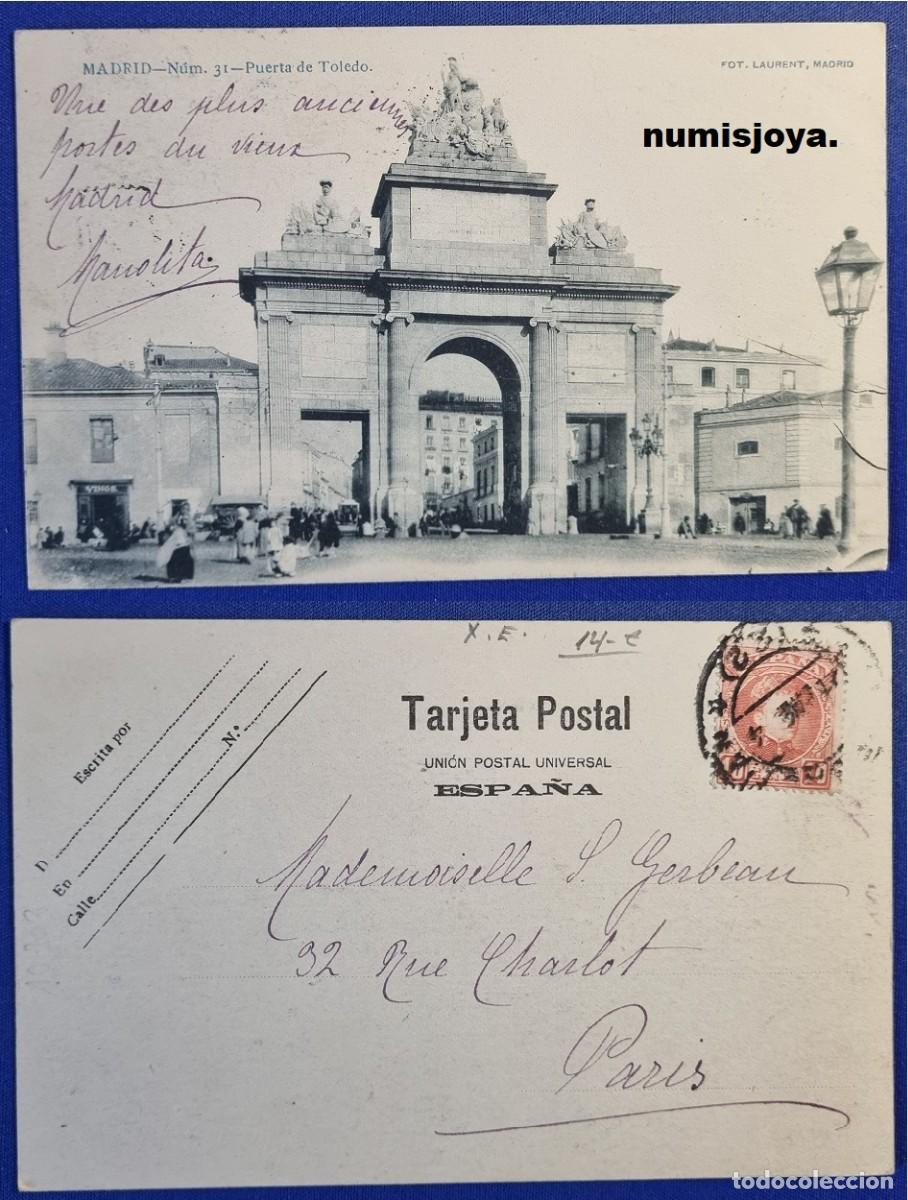 MADRID—Núm. 31—Puerta de Toledo.
FOT. LAURENT, MADRID
numisjoya.
Vue des plus anciennes
portes du vieux
Madrid
Manolita.
VINOS
X.E. 14-€
Tarjeta Postal
UNIÓN POSTAL UNIVERSAL
ESPAÑA
Escrita por
D
En
N.º
Calle
ESPAÑA
10
Mademoiselle S. Gerbeau
32 Rue Charlot
Paris
todocoleccion